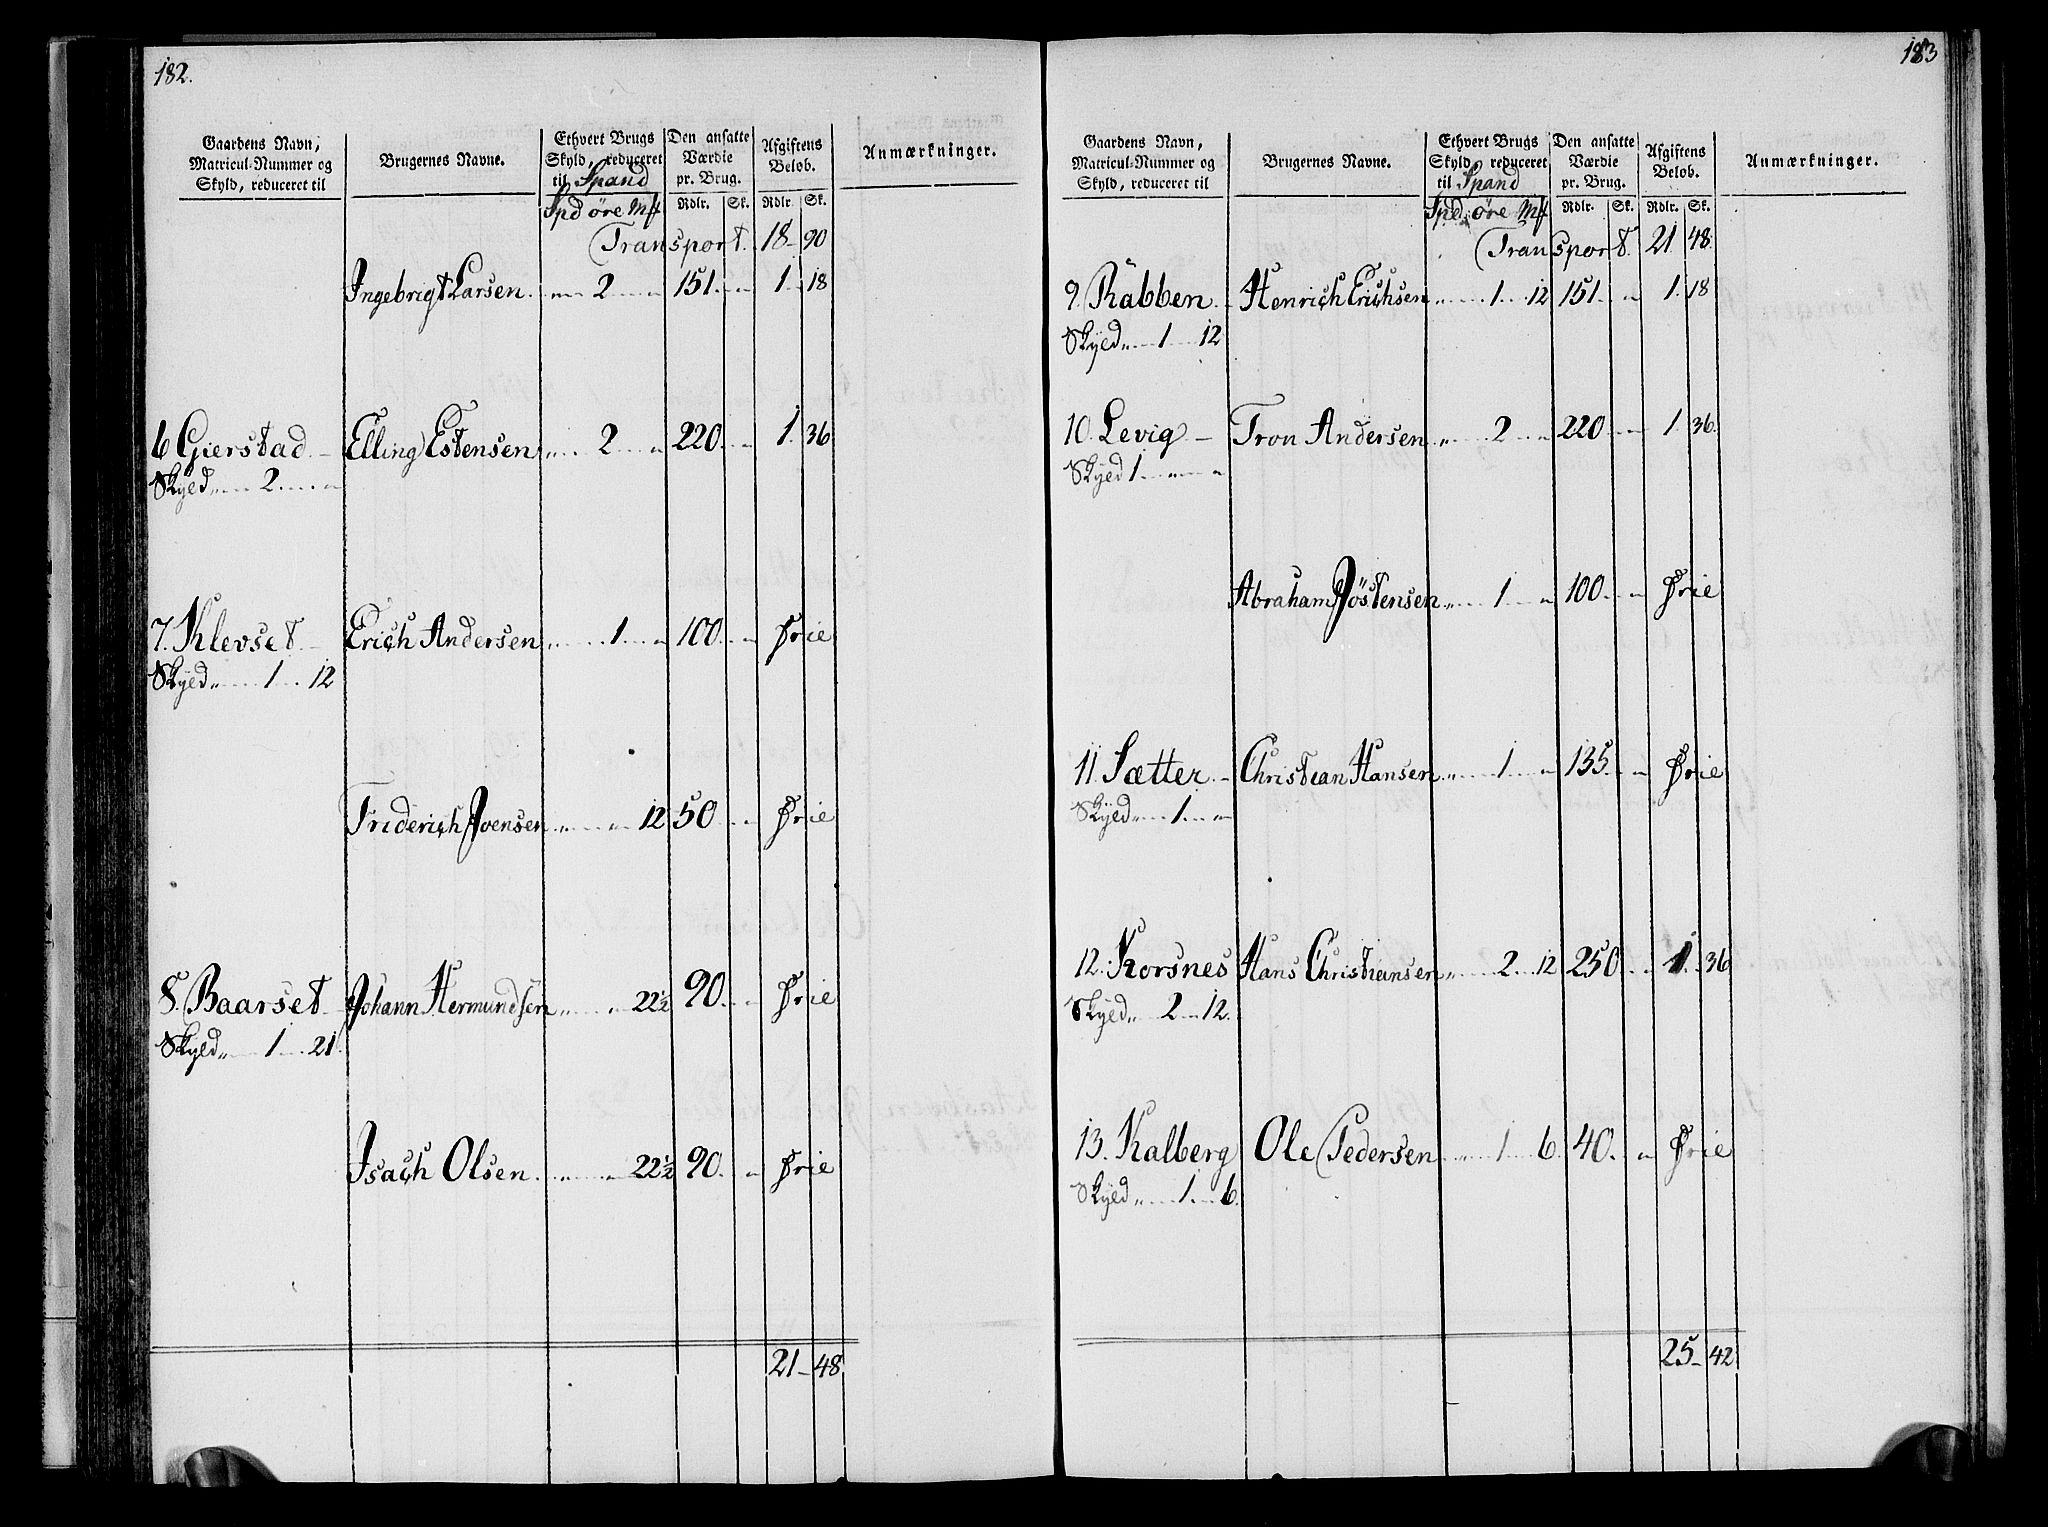 182.
Gaardens Navn, Matricul-Nummer og Skyld, reduceret til | Brugernes Navne. | Ethvert Brugs Skyld, reduceret til Spand | Den ansatte Værdie pr. Brug. | Afgiftens Belob. | Anmærkninger.
Spd öre Mk | Rdlr. | Sk. | Rdlr. | Sk.
Transport. 18 90
Ingebrigt Larsen. „ 2 „ 151 „ 1 18
6 Gierstad Elling Estensen „ 2 „ 220 „ 1. 36
Skyld „ 2 „
7. Klevset Erich Andersen „ 1 „ 100 „ Frie
Skyld „ 1 12
Friderich Joensen „ „ 12 50 „ Frie
8. Baarset Johann Hermundsen „ „ 22½ 90 „ Frie
Skyld „ 1 21.
Isach Olsen. „ „ 22½ 90. „ Frie
21 48
183
Gaardens Navn, Matricul-Nummer og Skyld, reduceret til | Brugernes Navne. | Ethvert Brugs Skyld, reduceret til Spand | Den ansatte Værdie pr. Brug. | Afgiftens Belob. | Anmærkninger.
Spd. öre Mk | Rdlr. | Sk. | Rdlr. | Sk.
Transport. 21 48.
9. Rabben Henrich Erichsen „ 1 12 151 „ 1. 18
Skyld „ 1 12
10. Levig Tron Andersen „ 2 „ 220 „ 1. 36.
Skyld 1 „ „
Abraham Jöstensen „ 1 „ 100 „ Frie
11. Sætter Christian Hansen „ 1 „ 135 „ Frie
Skyld „ 1 „
12. Korsnes Hans Christiansen „ 2 12 250 „ 1. 36
Skyld „ 2 12.
13. Kalberg Ole Pedersen „ 1 6 40. „ Frie
Skyld „ 1 6.
25 42